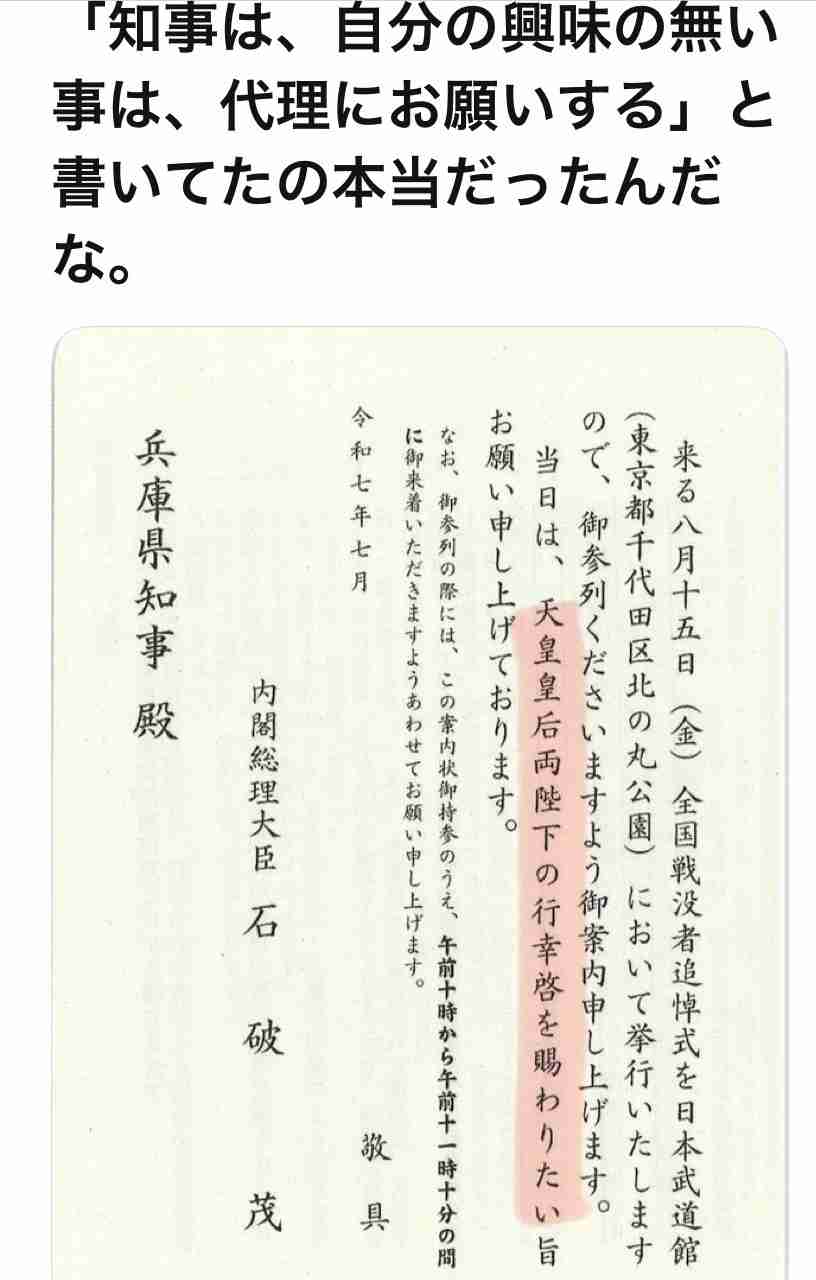 「知事は、自分の興味の無い
事は、代理にお願いする」と
書いてたの本当だったんだ
な。
来る八月十五日（金）全国戦没者追悼式を日本武道館
（東京都千代田区北の丸公園）において挙行いたします
ので、御参列くださいますよう御案内申し上げます。
当日は、天皇皇后両陛下の行幸啓を賜わりたい旨
お願い申し上げております。
なお、御参列の際には、この案内状御持参のうえ、午前十時から午前十一時十分の間
に御来着いただきますようあわせてお願い申し上げます。
敬具
令和七年七月
内閣総理大臣 石破茂
兵庫県知事 殿